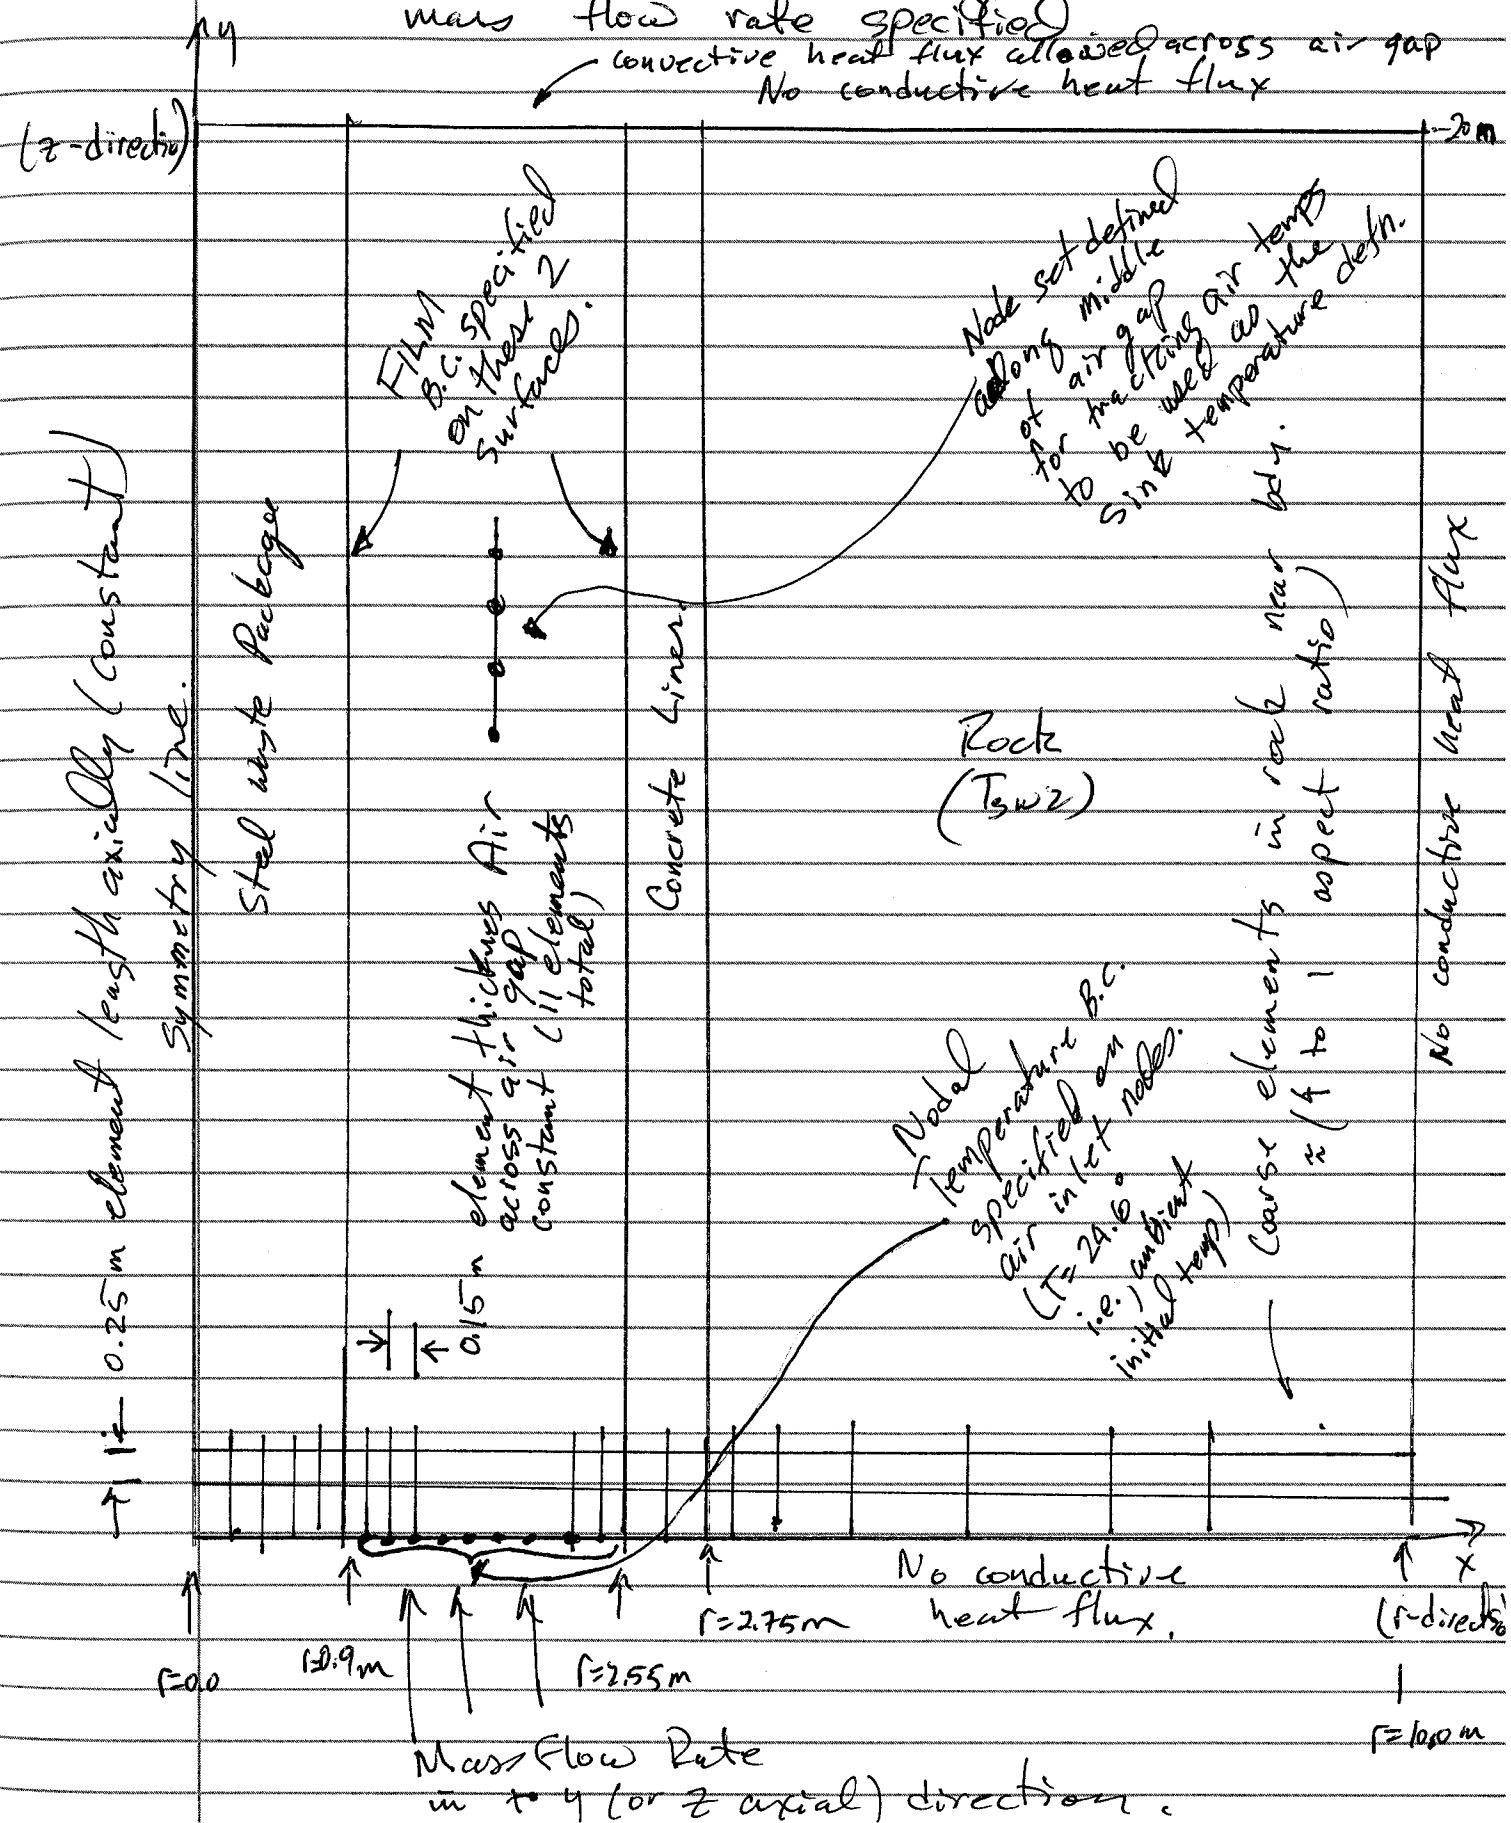 mass flow rate specified
convective heat flux allowed across air gap
No conductive heat flux
y
(z-directio)
-20m
FILM
B.C. specified
on these 2
surfaces.
Node set defined
along middle
of air gap
for tracking air temps
to be used as the
sink temperature defn.
0.25m element length axially (constant)
Symmetry line.
Steel waste Package
Air
0.15m element thicknes
across air gap
constant (11 elements
total)
Concrete Liner
Rock
(TSw2)
Coarse elements in rock near bdy.
≈ (4 to 1 aspect ratio)
No conductive heat flux
Nodal
Temperature B.C.
specified on
air inlet nodes.
(T=24.6°
i.e., ambient
initial temp)
x
(r-directio
No conductive
heat flux.
r=0.0
r=0.9m
r=2.55m
r=2.75m
r=10.0m
Mass Flow Rate
in + y (or z axial) direction.